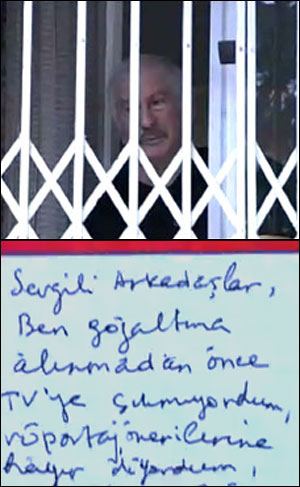 Sevgili Arkadaşlar,
Ben gözaltına
alınmadan önce
TV'ye çıkmıyordum,
röportaj önerilerine
hayır diyordum,